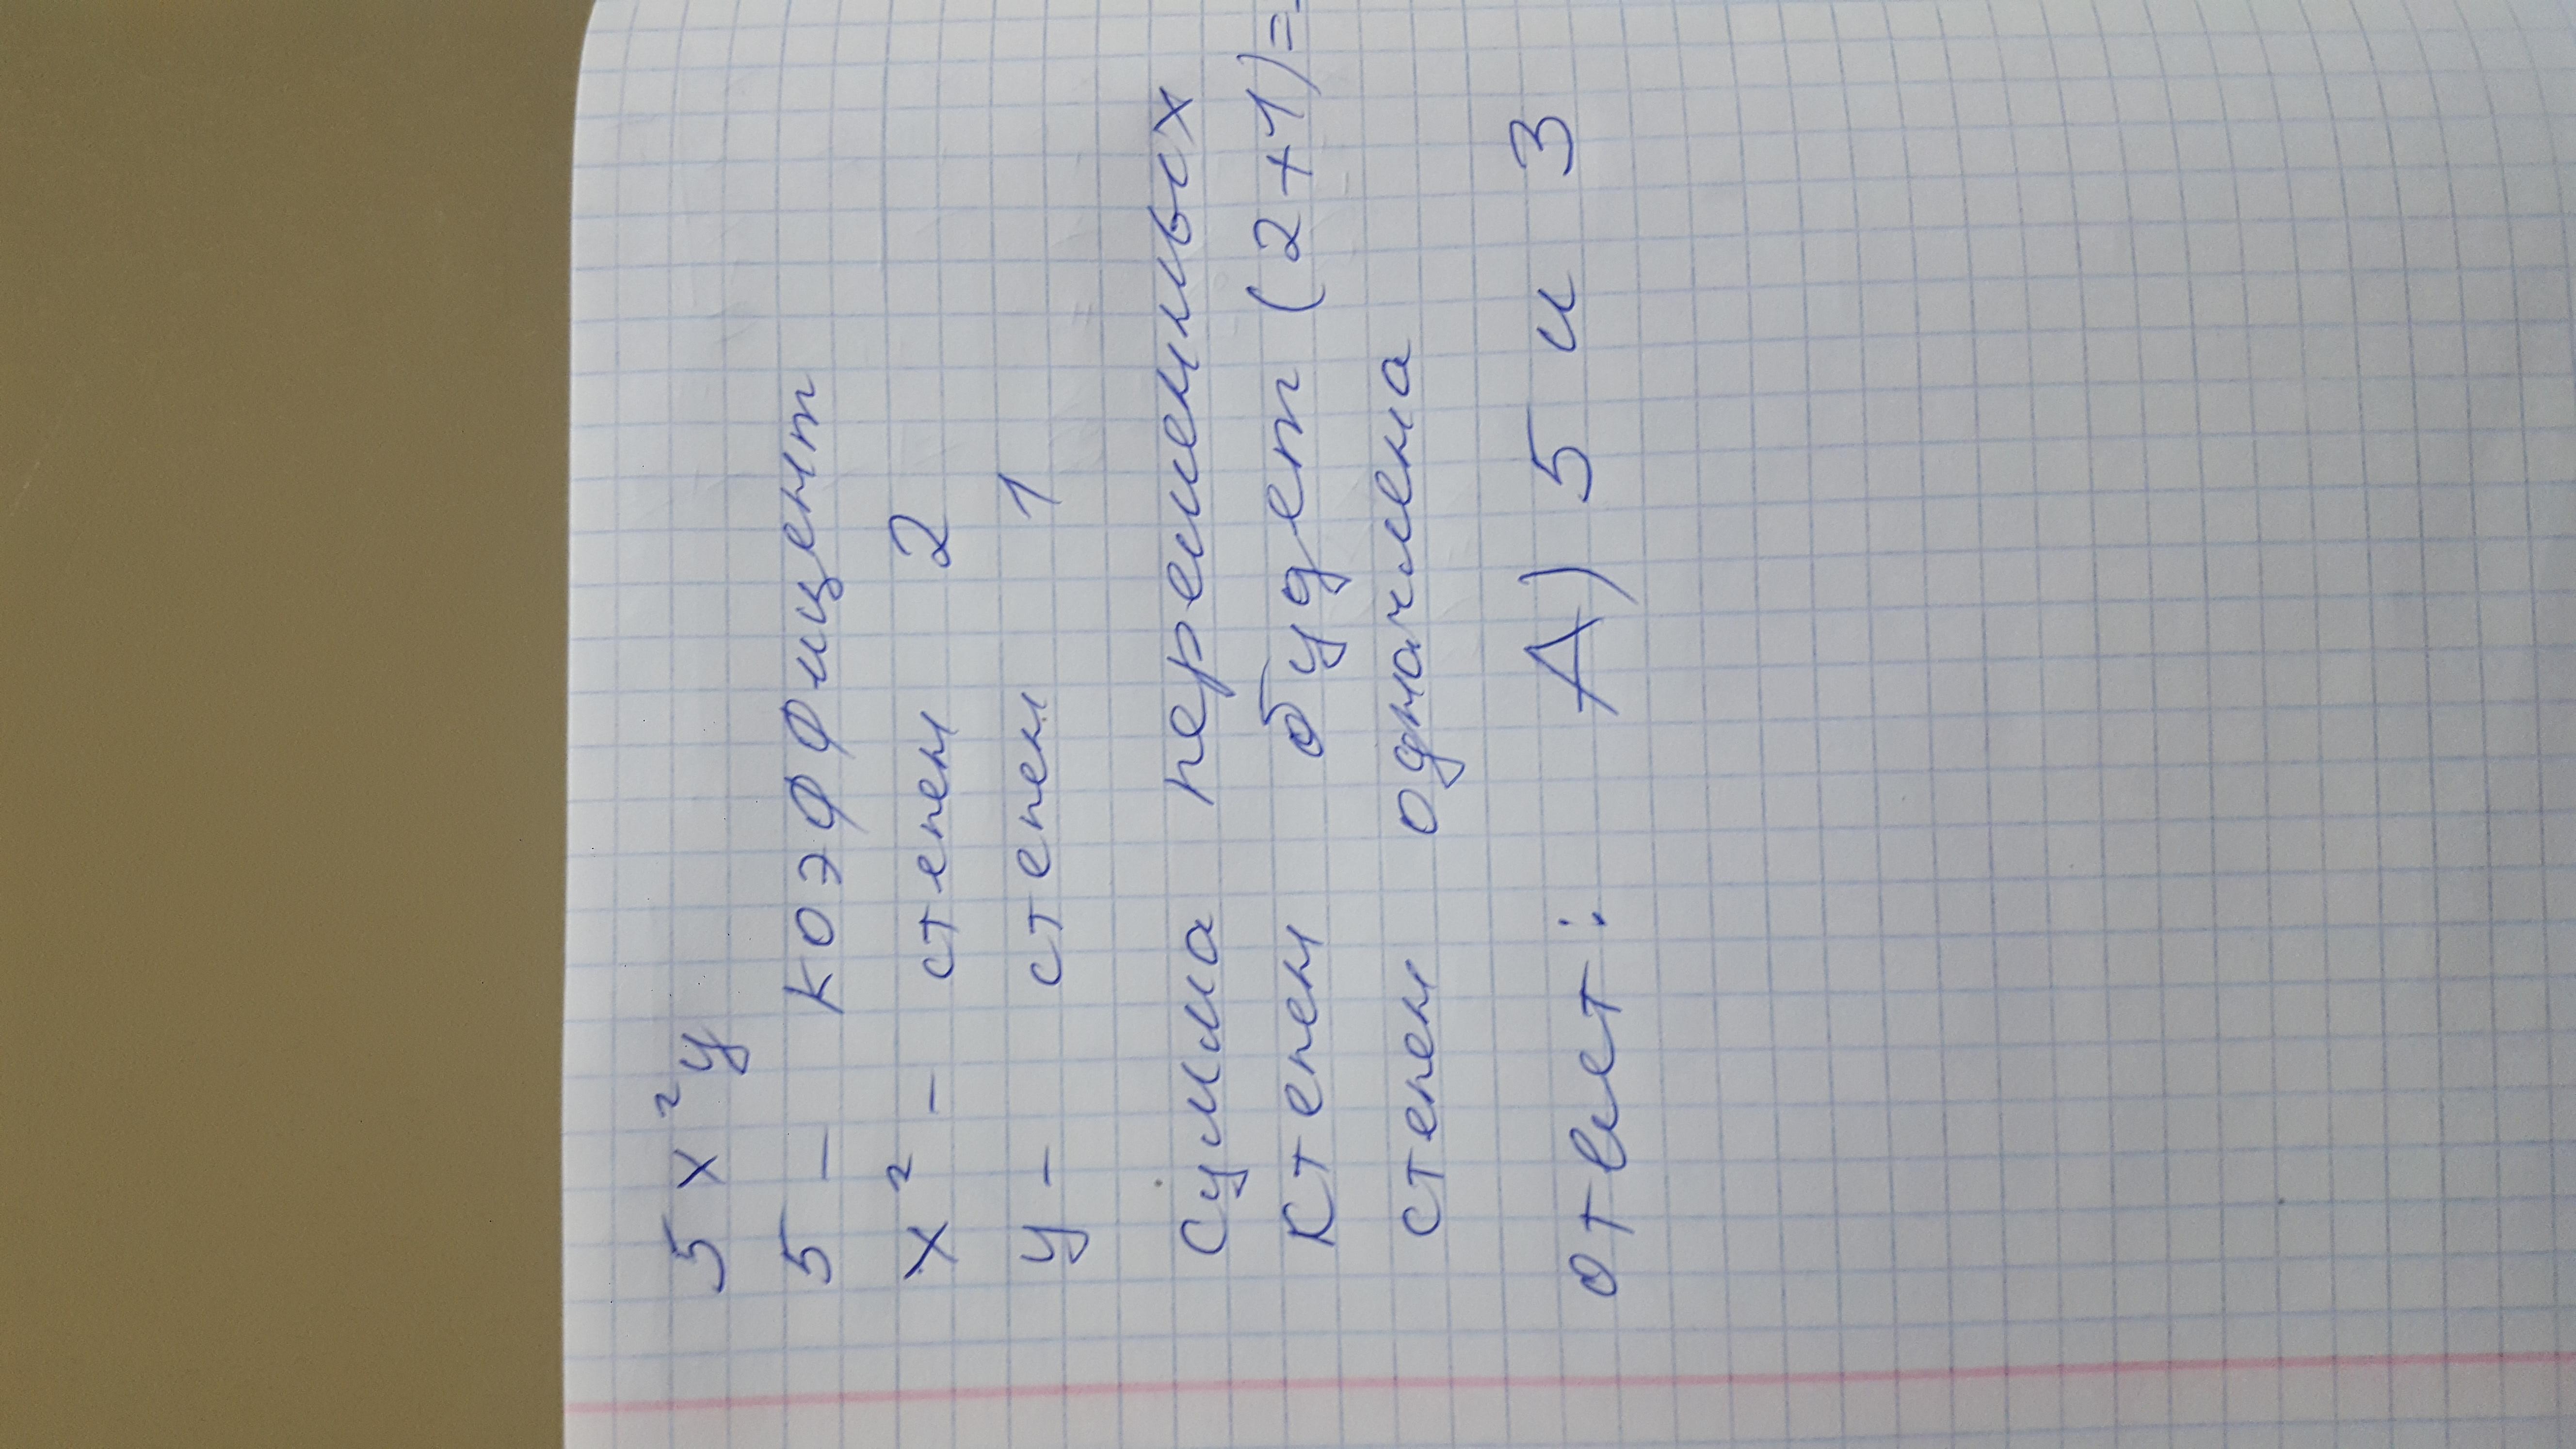 5x²y
5 - коэффицент
x² - степен 2
y - степен 1
Сумма переменных
Степен будет (2+1)=
степен одначлена
ответ: А) 5 и 3